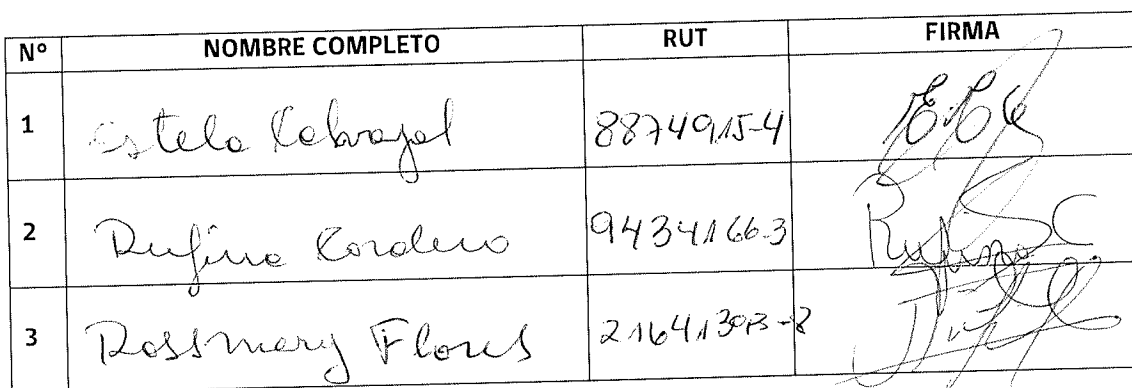 Nº NOMBRE COMPLETO RUT FIRMA
1 Estela Cabrajal 8874915-4
2 Rufino Cordero 9434166-3 Rufino S C
3 Rossmery Flores